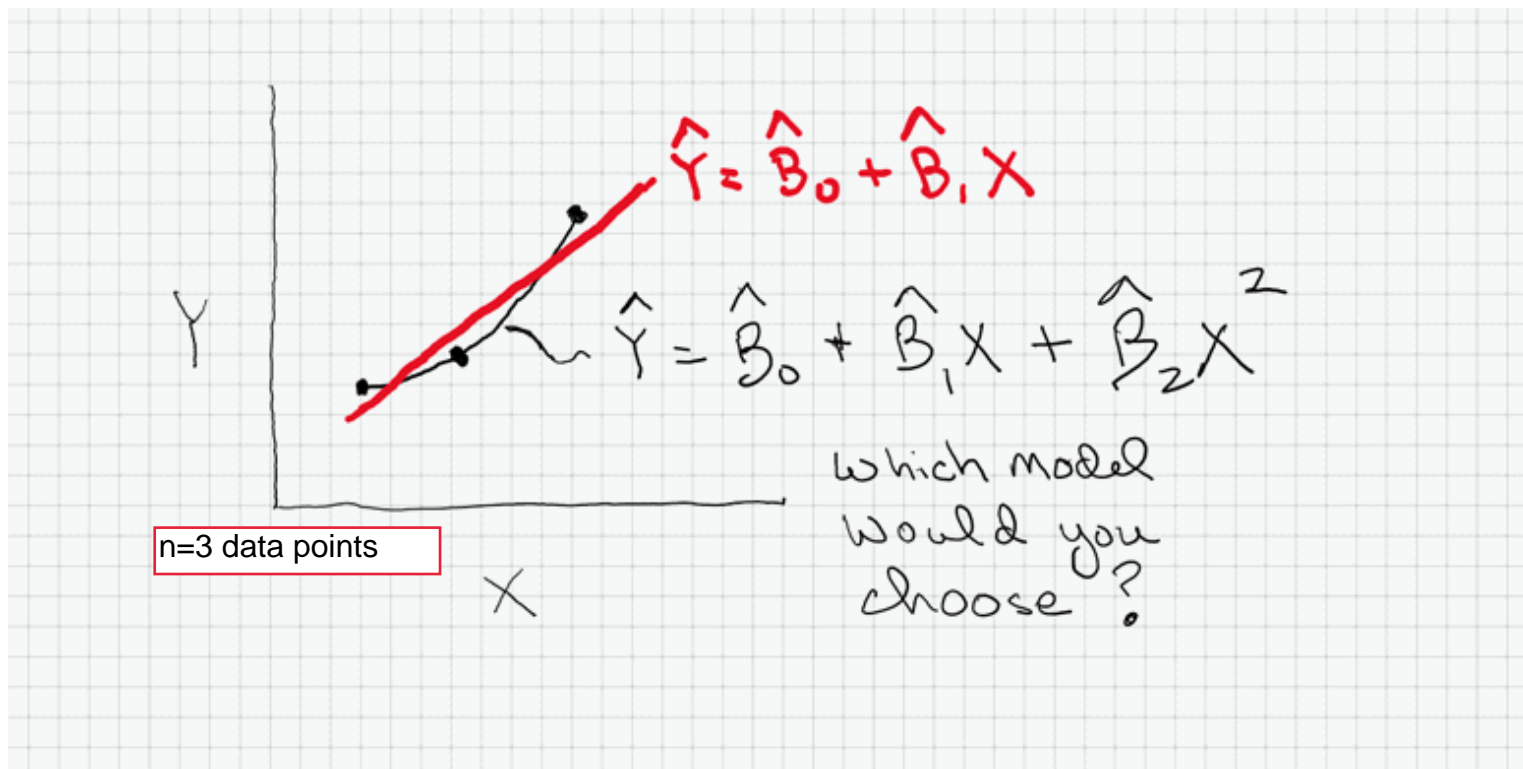 Ŷ = B̂₀ + B̂₁X
Ŷ = B̂₀ + B̂₁X + B̂₂X²
Y
which model
would you
choose?
n=3 data points
X